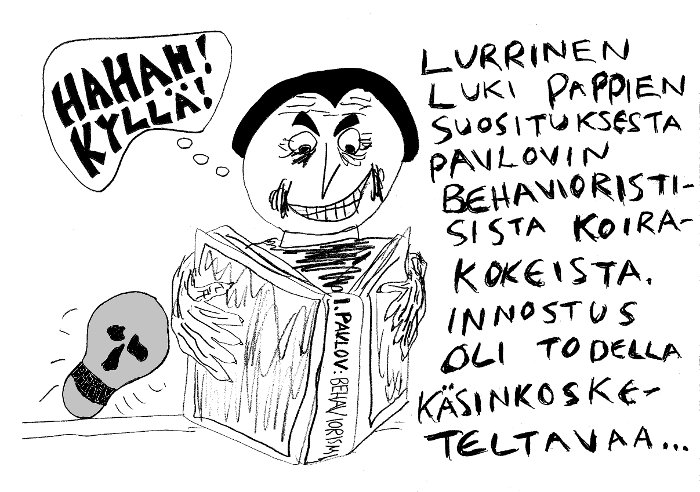 HAHAH!
KYLLÄ!
LURRINEN
LUKI PAPPIEN
SUOSITUKSESTA
PAVLOVIN
BEHAVIORISTI-
SISTA KOIRA-
KOKEISTA.
INNOSTUS
OLI TODELLA
KÄSINKOSKE-
TELTAVAA...
I. PAVLOV: BEHAVIORISMI